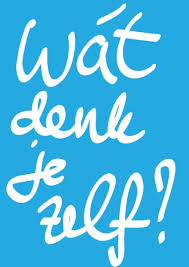 Wát
denk
je
zelf?